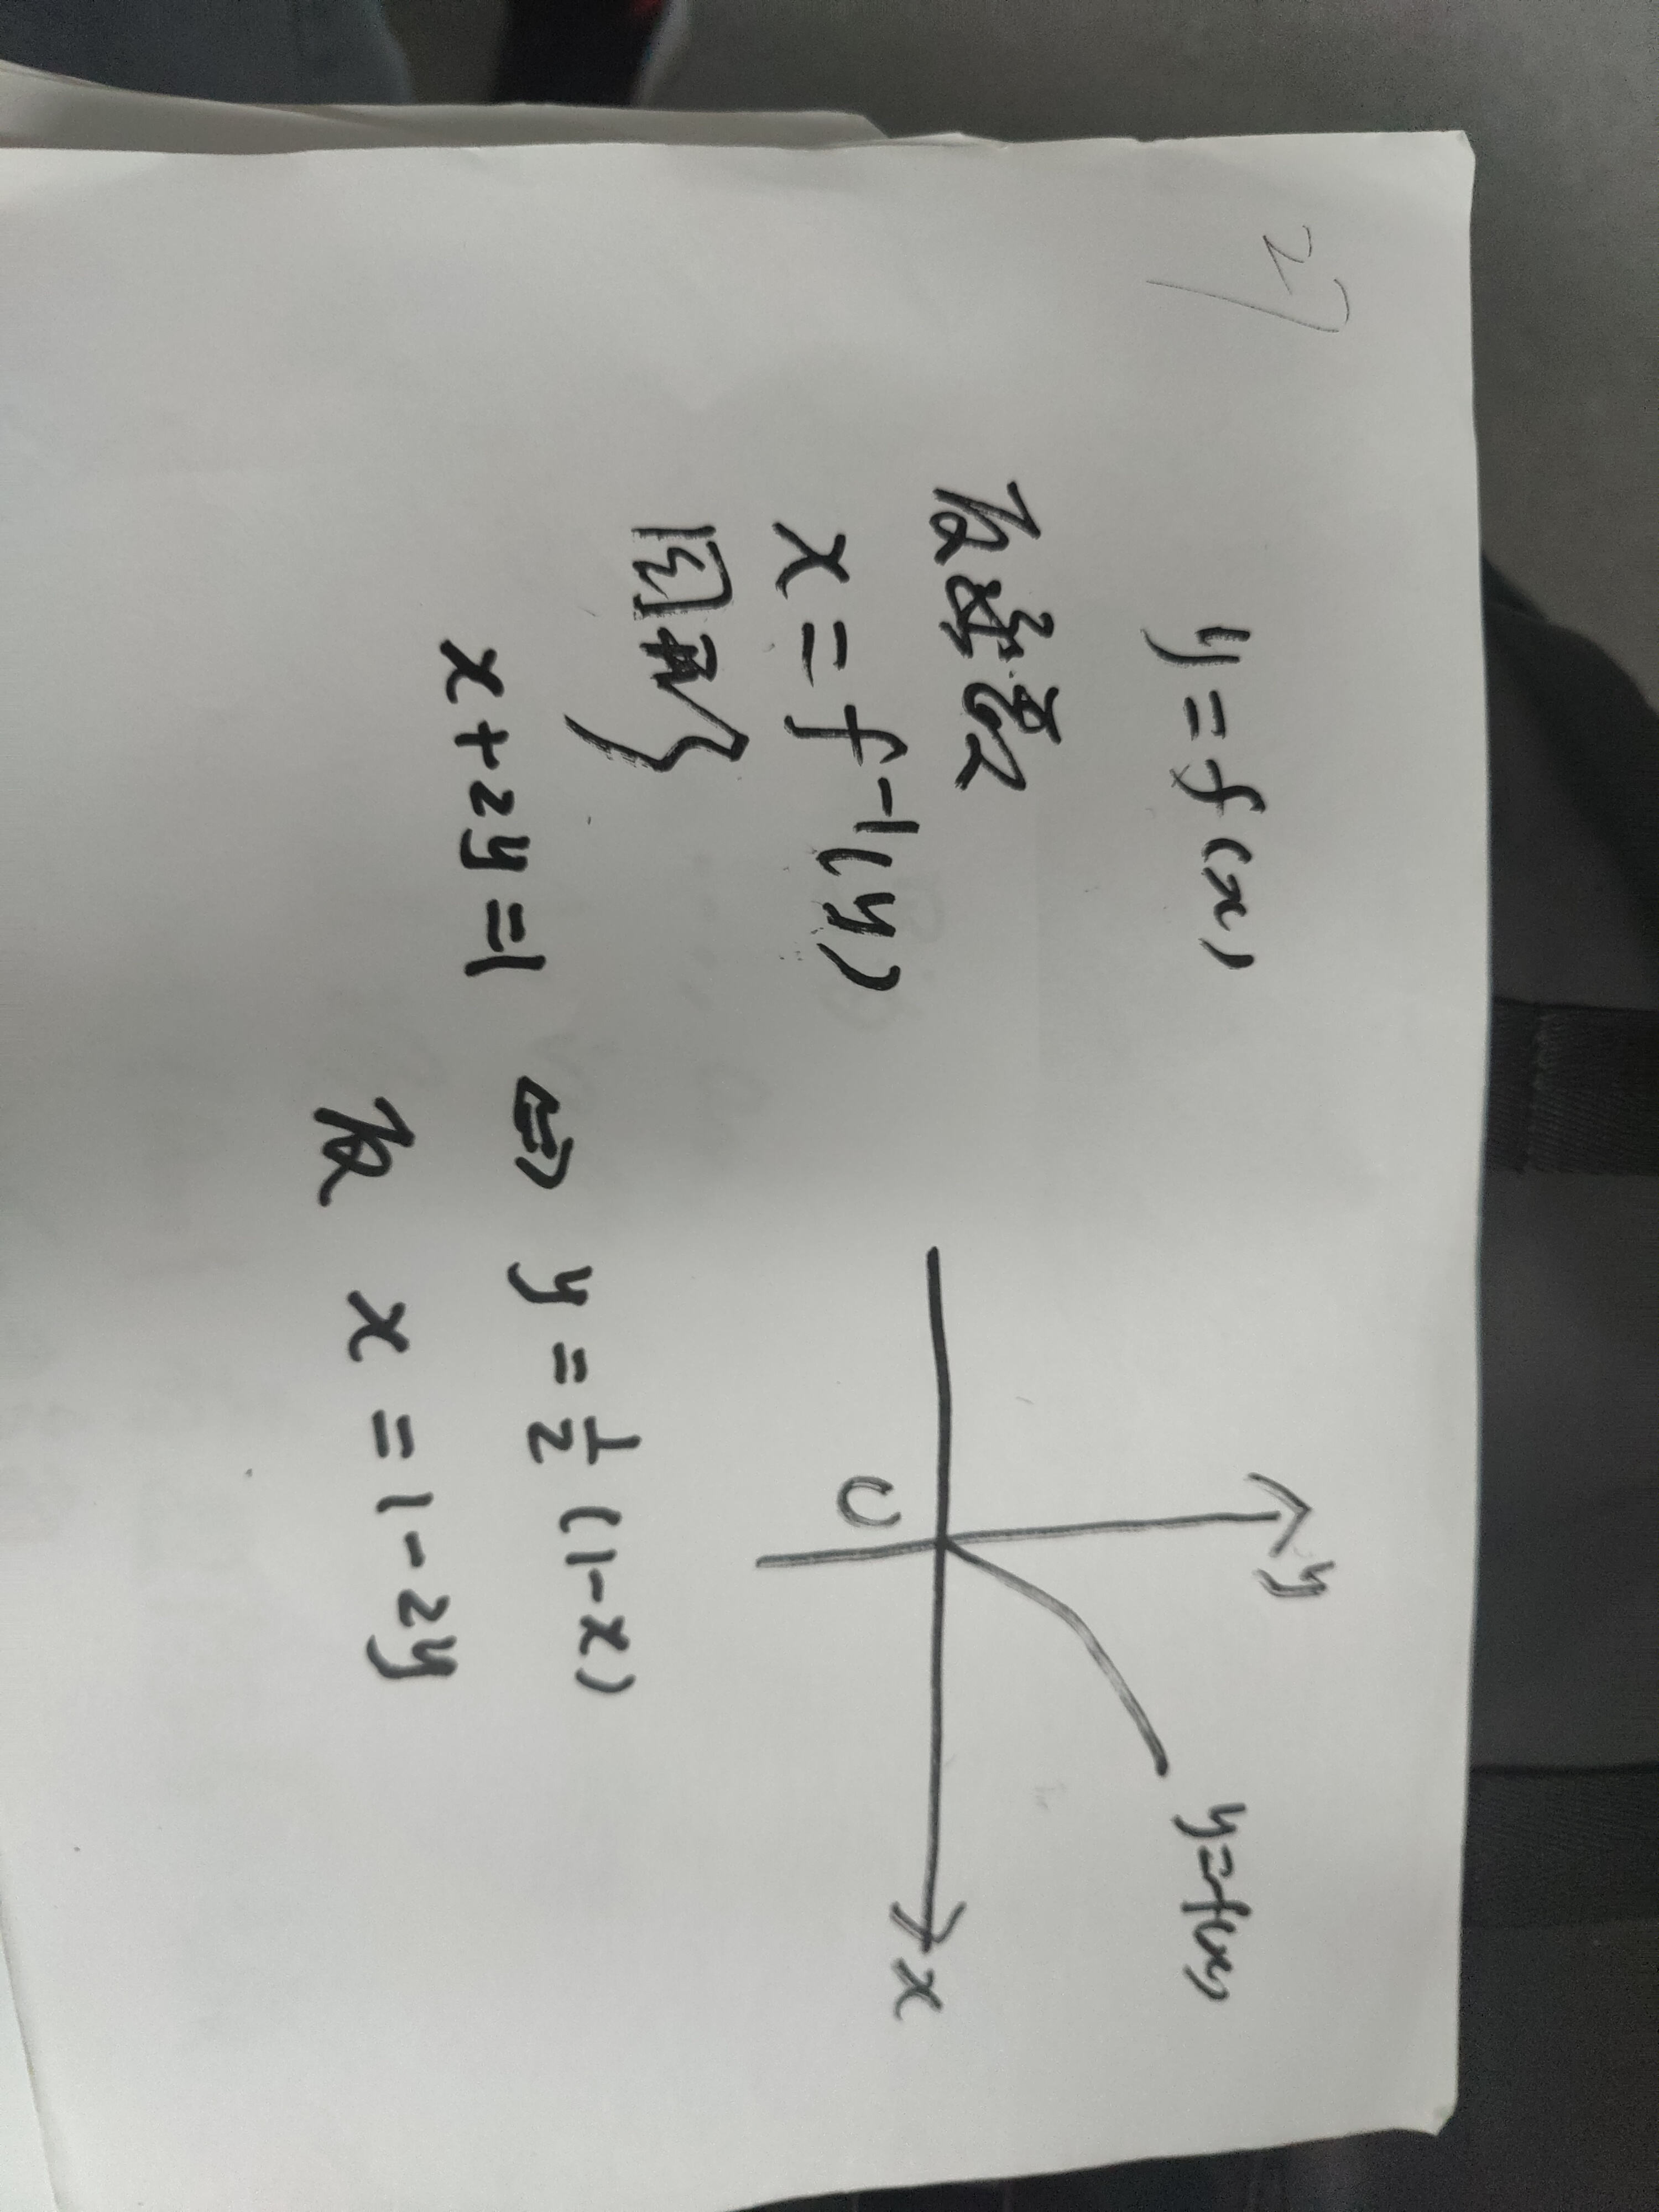 27
y = f(x)
反函数
x = f-1(y)
图形
x+2y=1 ⇔ y = 1/2 (1-x)
反 x = 1-2y
y
y=f(x)
O
x